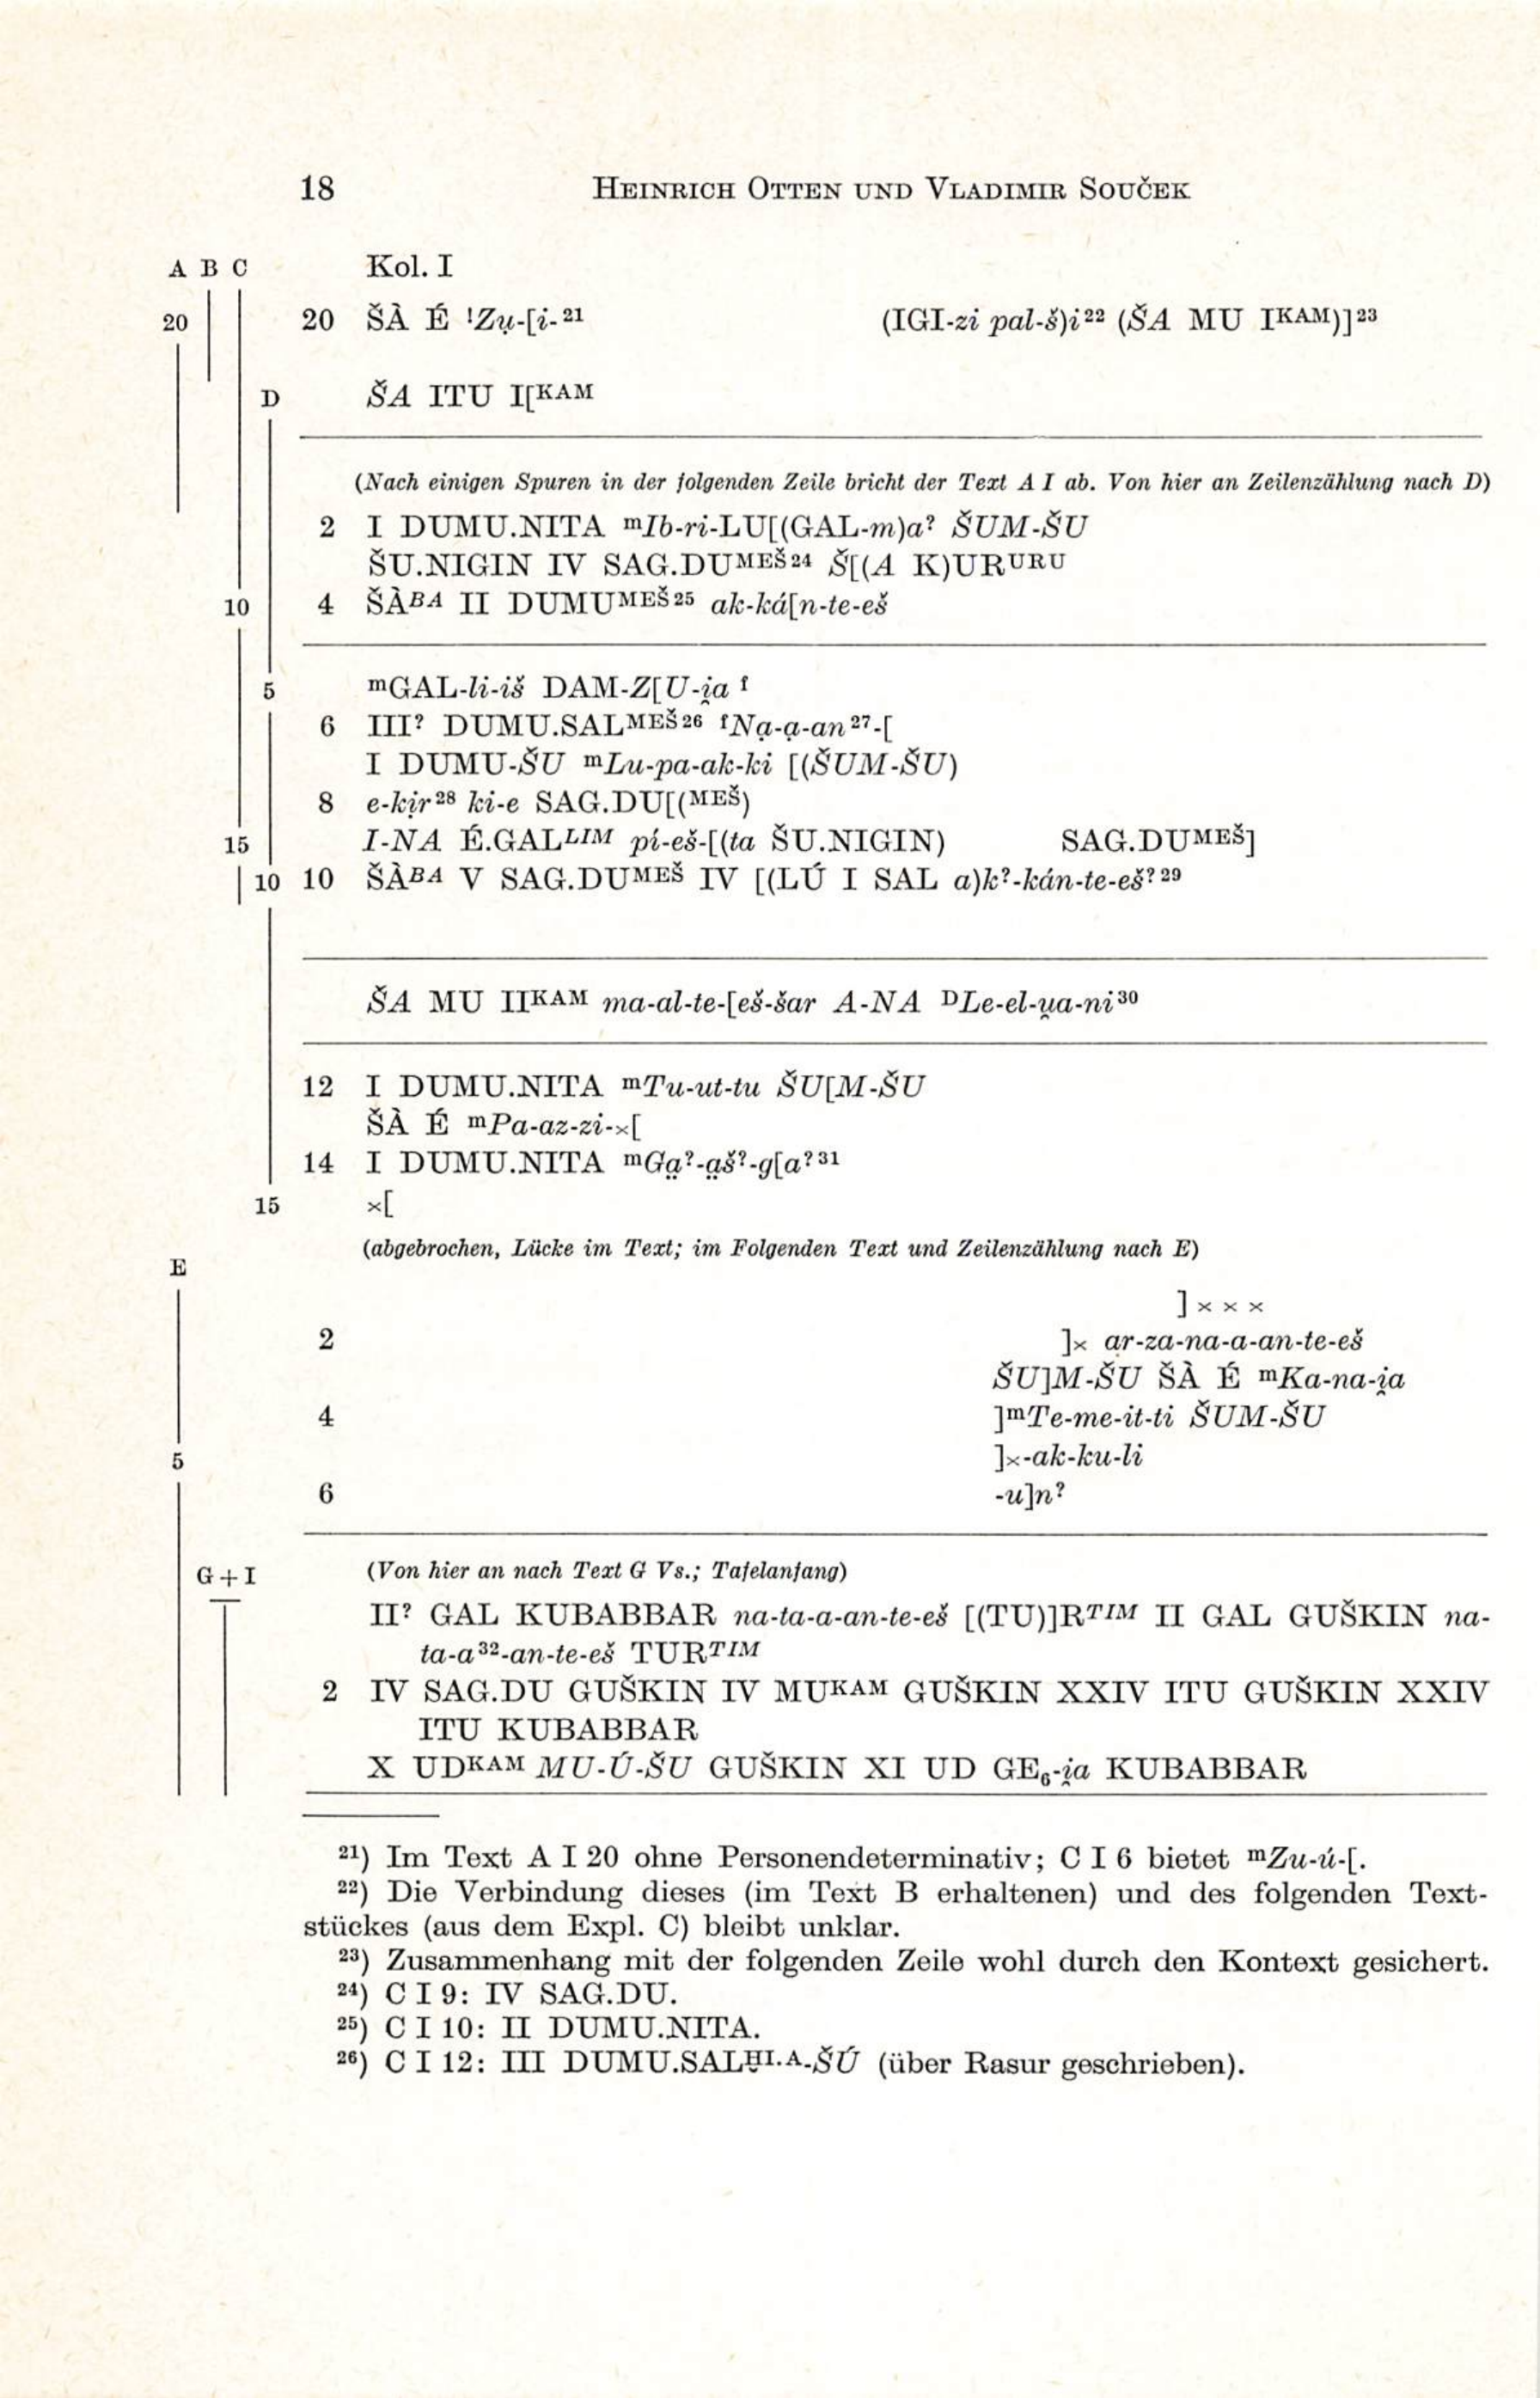 18 HEINRICH OTTEN UND VLADIMIR SOUČEK
A B C Kol. I
20 20 ŠÀ É !Zu̯-[i-²¹ (IGI-zi pal-š)i²² (ŠA MU Iᴷᴬᴹ)]²³
D ŠA ITU I[ᴷᴬᴹ
(Nach einigen Spuren in der folgenden Zeile bricht der Text A I ab. Von hier an Zeilenzählung nach D)
2 I DUMU.NITA ᵐIb-ri-LU[(GAL-m)a? ŠUM-ŠU
ŠU.NIGIN IV SAG.DUᴹᴱŠ²⁴ Š[(A K)URᵁᴿᵁ
10 4 ŠÀᴮᴬ II DUMUᴹᴱŠ²⁵ ak-ká[n-te-eš
5 ᵐGAL-li-iš DAM-Z[U-i̯a ᶠ
6 III? DUMU.SALᴹᴱŠ²⁶ ᶠNạ-ạ-an²⁷-[
I DUMU-ŠU ᵐLu-pa-ak-ki [(ŠUM-ŠU)
8 e-kịr²⁸ ki-e SAG.DU[(ᴹᴱŠ)
15 I-NA É.GALᴸᴵᴹ pí-eš-[(ta ŠU.NIGIN) SAG.DUᴹᴱŠ]
10 10 ŠÀᴮᴬ V SAG.DUᴹᴱŠ IV [(LÚ I SAL a)k?-kán-te-eš?²⁹
ŠA MU IIᴷᴬᴹ ma-al-te-[eš-šar A-NA ᴰLe-el-u̯a-ni³⁰
12 I DUMU.NITA ᵐTu-ut-tu ŠU[M-ŠU
ŠÀ É ᵐPa-az-zi-×[
14 I DUMU.NITA ᵐGạ?-ạš?-g[a?³¹
15 ×[
(abgebrochen, Lücke im Text; im Folgenden Text und Zeilenzählung nach E)
E
]× × ×
2 ]× ar-za-na-a-an-te-eš
ŠU]M-ŠU ŠÀ É ᵐKa-na-i̯a
4 ]ᵐTe-me-it-ti ŠUM-ŠU
5 ]×-ak-ku-li
6 -u]n?
G+I (Von hier an nach Text G Vs.; Tafelanfang)
II? GAL KUBABBAR na-ta-a-an-te-eš [(TU)]Rᵀᴵᴹ II GAL GUŠKIN na-
ta-a³²-an-te-eš TURᵀᴵᴹ
2 IV SAG.DU GUŠKIN IV MUᴷᴬᴹ GUŠKIN XXIV ITU GUŠKIN XXIV
ITU KUBABBAR
X UDᴷᴬᴹ MU-Ú-ŠU GUŠKIN XI UD GE₆-i̯a KUBABBAR
²¹) Im Text A I 20 ohne Personendeterminativ; C I 6 bietet ᵐZu-ú-[.
²²) Die Verbindung dieses (im Text B erhaltenen) und des folgenden Text-
stückes (aus dem Expl. C) bleibt unklar.
²³) Zusammenhang mit der folgenden Zeile wohl durch den Kontext gesichert.
²⁴) C I 9: IV SAG.DU.
²⁵) C I 10: II DUMU.NITA.
²⁶) C I 12: III DUMU.SALḪI.A-ŠÚ (über Rasur geschrieben).